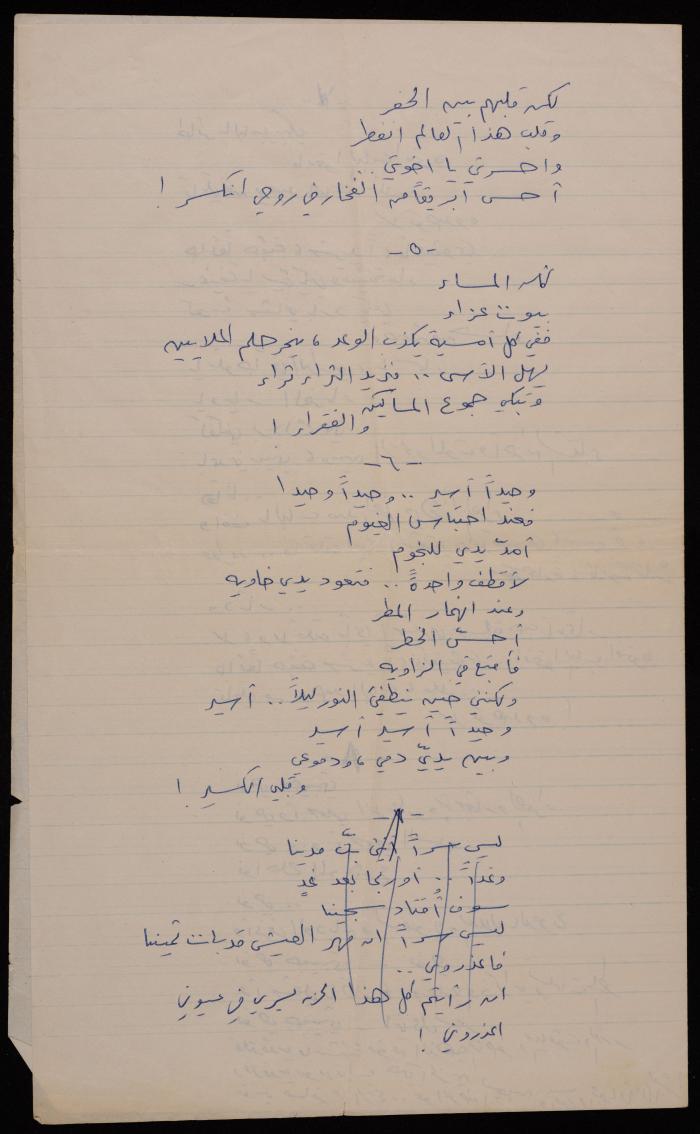 لكن قلبهم بين الحفر
وقلب هذا العالم انفطر
واحسرتي يا اخوتي ..
أحس ابريقاً من الفخار في روحي انكسر !
-٥-
كل المساء
بيوت عزاء
ففي كل أمسية يكذب الوعد، ينحر حلم الملايين
يهل الأسى .. فيزيد الثراء ثراء
وتبكي جموع المساكين
والفقراء !
-٦-
وحيداً أسير .. وحيداً وحيدا
فعند احتباس الغيوم
أمدّ يدي للنجوم
لأقطف واحدةً .. فتعود يدي خاويه
وعند انهمار المطر
أحسّ الخطر
فأقبع في الزاويه
ولكنني حين ينطفئ النور ليلاً .. أسير
وحيداً أسير أسير
وبين يديّ دمي، ودموعي
وقلبي الكسير !
ليس سراً أنني بتّ مدينا
وغداً .. أو ربما بعد غدٍ
سوف أُقتاد سجينا
ليس سراً ان مهر العيش قد بات ثمينا
فاعذروني ..
ان رأيتم كل هذا الحزن يسري في عيوني
اعذروني !